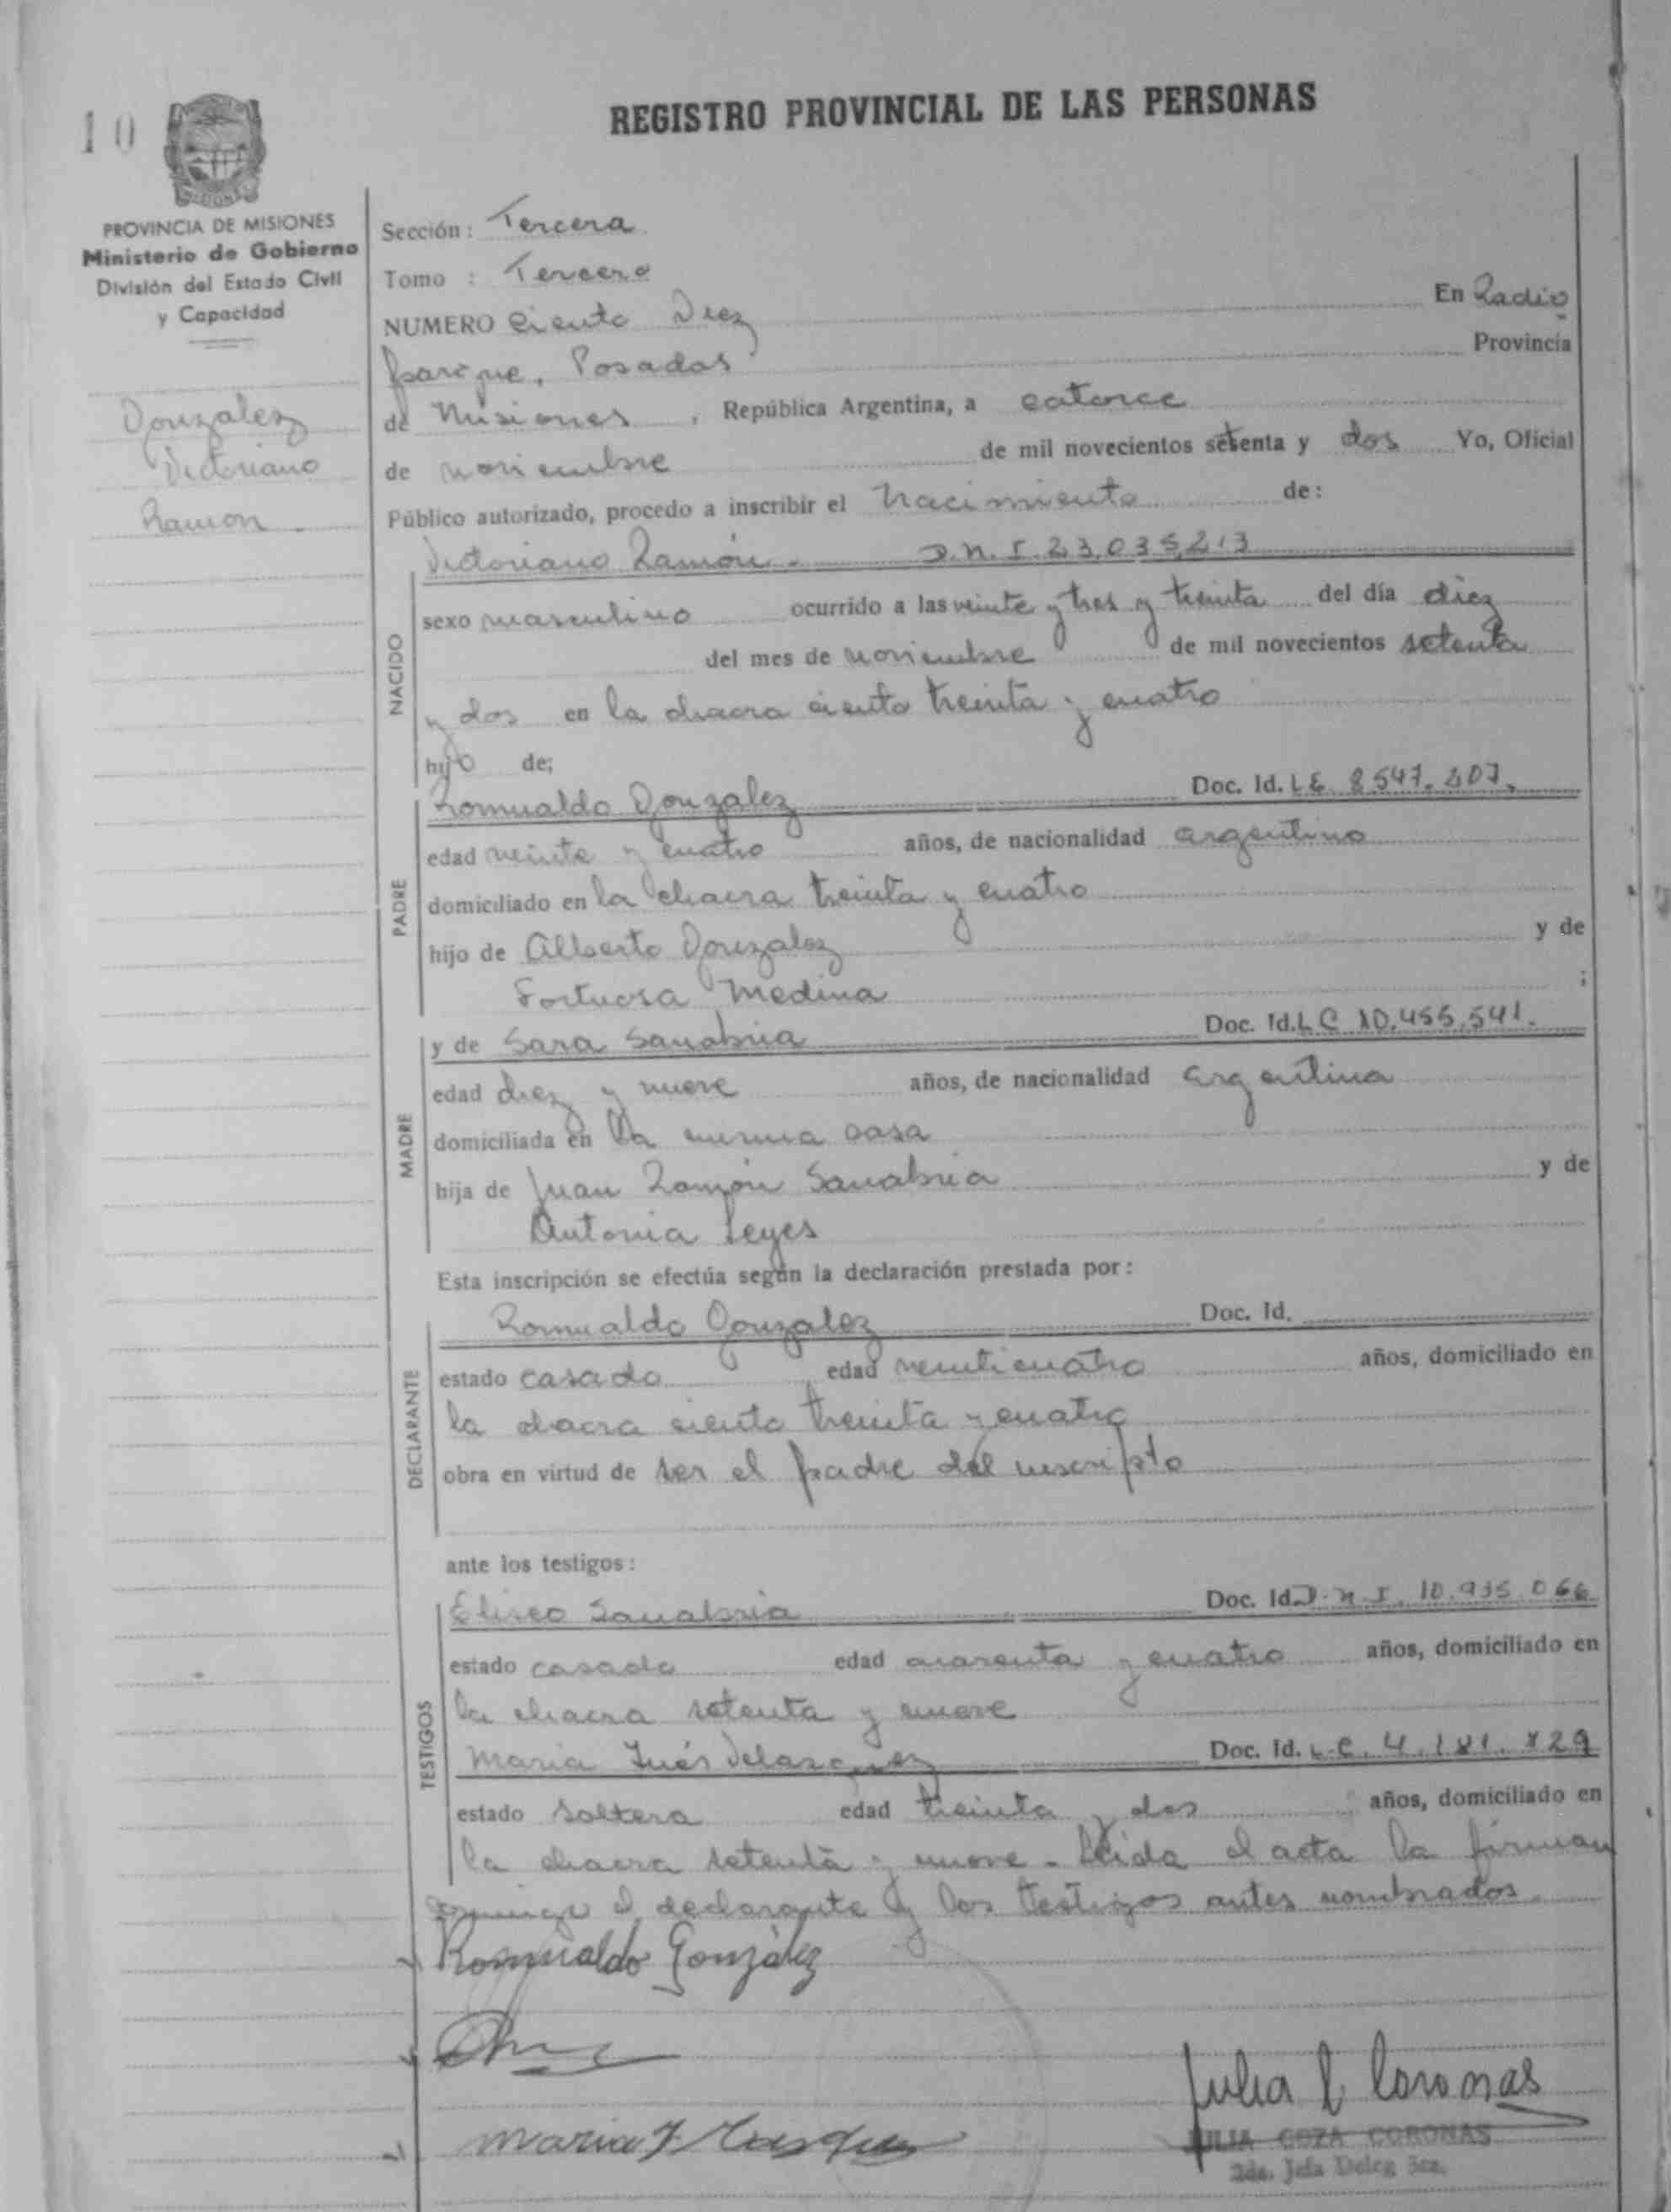 10
REGISTRO PROVINCIAL DE LAS PERSONAS
PROVINCIA DE MISIONES
Ministerio de Gobierno
División del Estado Civil
y Capacidad
Gonzalez
Victoriano
Ramon
Sección: Tercera
Tomo : Tercero
NUMERO Ciento Diez En Radio
parque, Posadas Provincia
de Misiones, República Argentina, a catorce
de noviembre de mil novecientos setenta y dos Yo, Oficial
Público autorizado, procedo a inscribir el nacimiento de:
Victoriano Ramón. D.N.I. 23.035.213
NACIDO
sexo masculino ocurrido a las veinte y tres y treinta del día diez
del mes de noviembre de mil novecientos setenta
y dos en la chacra ciento treinta y cuatro
hijo de;
PADRE
Romualdo Gonzalez Doc. Id. LE 8.547.207.
edad veinte y cuatro años, de nacionalidad argentino
domiciliado en la chacra treinta y cuatro
hijo de Alberto Gonzalez y de
Fortuosa Medina ;
MADRE
y de Sara Sanabria Doc. Id. L C 10.455.541.
edad diez y nueve años, de nacionalidad argentina
domiciliada en la misma casa
hija de Juan Ramón Sanabria y de
Antonia Leyes
Esta inscripción se efectúa según la declaración prestada por:
DECLARANTE
Romualdo Gonzalez Doc. Id.
estado casado edad veinticuatro años, domiciliado en
la chacra ciento treinta y cuatro
obra en virtud de ser el padre del inscripto
ante los testigos:
TESTIGOS
Eliseo Sanabria Doc. Id. D.N.I. 10.935.066
estado casado edad cuarenta y cuatro años, domiciliado en
la chacra setenta y nueve
Maria Inés Velasquez Doc. Id. L.C. 4.181.829
estado soltera edad treinta y dos años, domiciliado en
la chacra setenta y nueve. Leida el acta la firman
conmigo el declarante y los testigos antes nombrados.
Romualdo González
Julia Coronas
Maria I
JULIA COZA CORONAS
2da. Jefa Deleg 3ra.